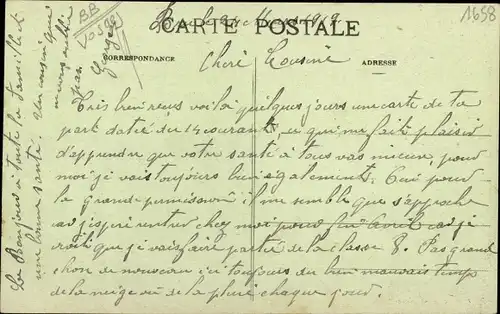 CARTE POSTALE
Mars 1919
CORRESPONDANCE
ADRESSE
Cheré Cousine
Très heureux voila quelques jours une carte de ta
part daté du 14 courant, ce qui me fait plaisir
d'apprendre que votre santé à tous vas mieux, pour
moi je vais toujours bien également. Oui pour
la grande permission il me semble que s'approche
rentrer chez moi pour fin Avril
que je vais faire partie de la classe 8. Pas grand
chose de nouveau ici toujours du bien mauvais temps
de la neige ou de la pluie chaque jour.
Le Bonjour à toute la famille et
une bonne santé. Un cousin qui
ne vous oublie
pas.
Georges
BB
40598
1658